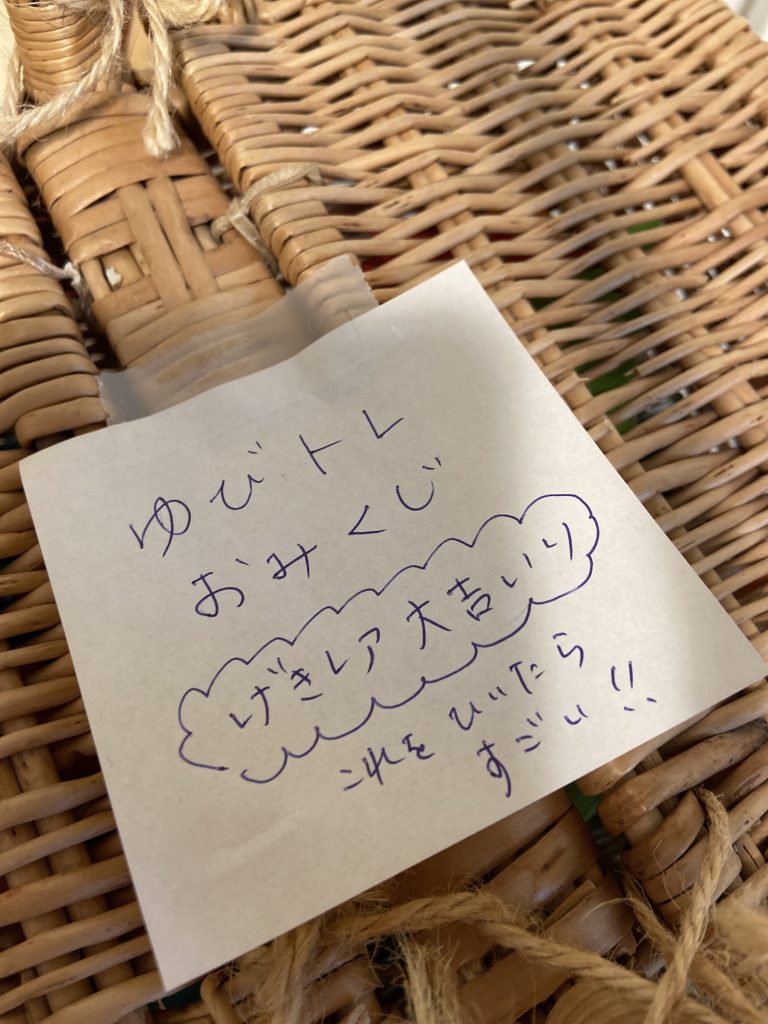 ゆびトレ
おみくじ
げきレア大吉いり
これをひいたら
すごい!!